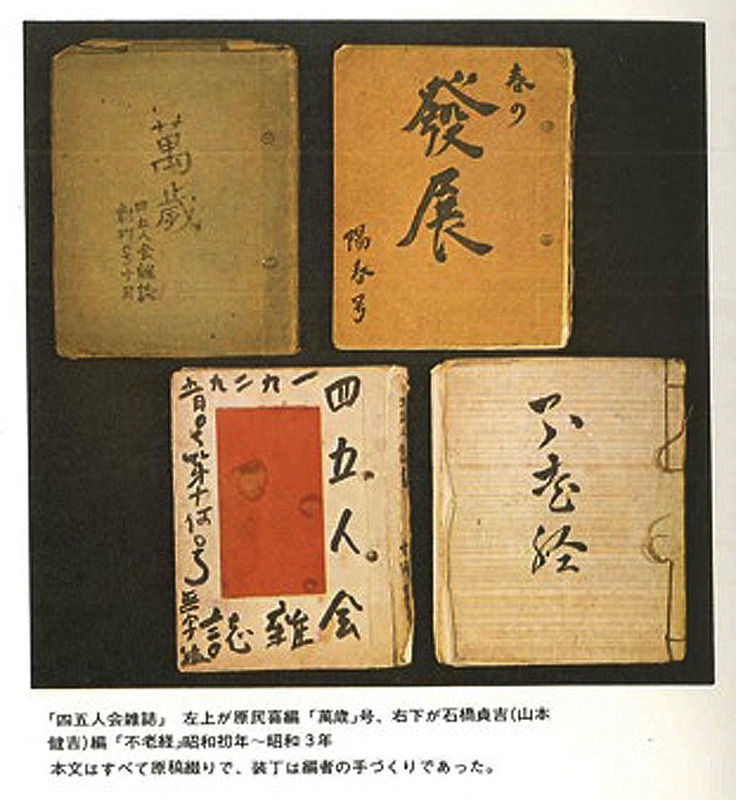 萬歳
四五人会雑誌
春の
發展
陽春号
四五人会
雑誌
一九二九
不老経
「四五人会雑誌」 左上が原民喜編「萬歳」号、右下が石橋貞吉(山本
健吉)編「不老経」昭和初年〜昭和3年
本文はすべて原稿綴りで、装丁は編者の手づくりであった。